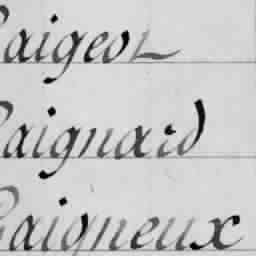 aigeot
aignard
aigneux